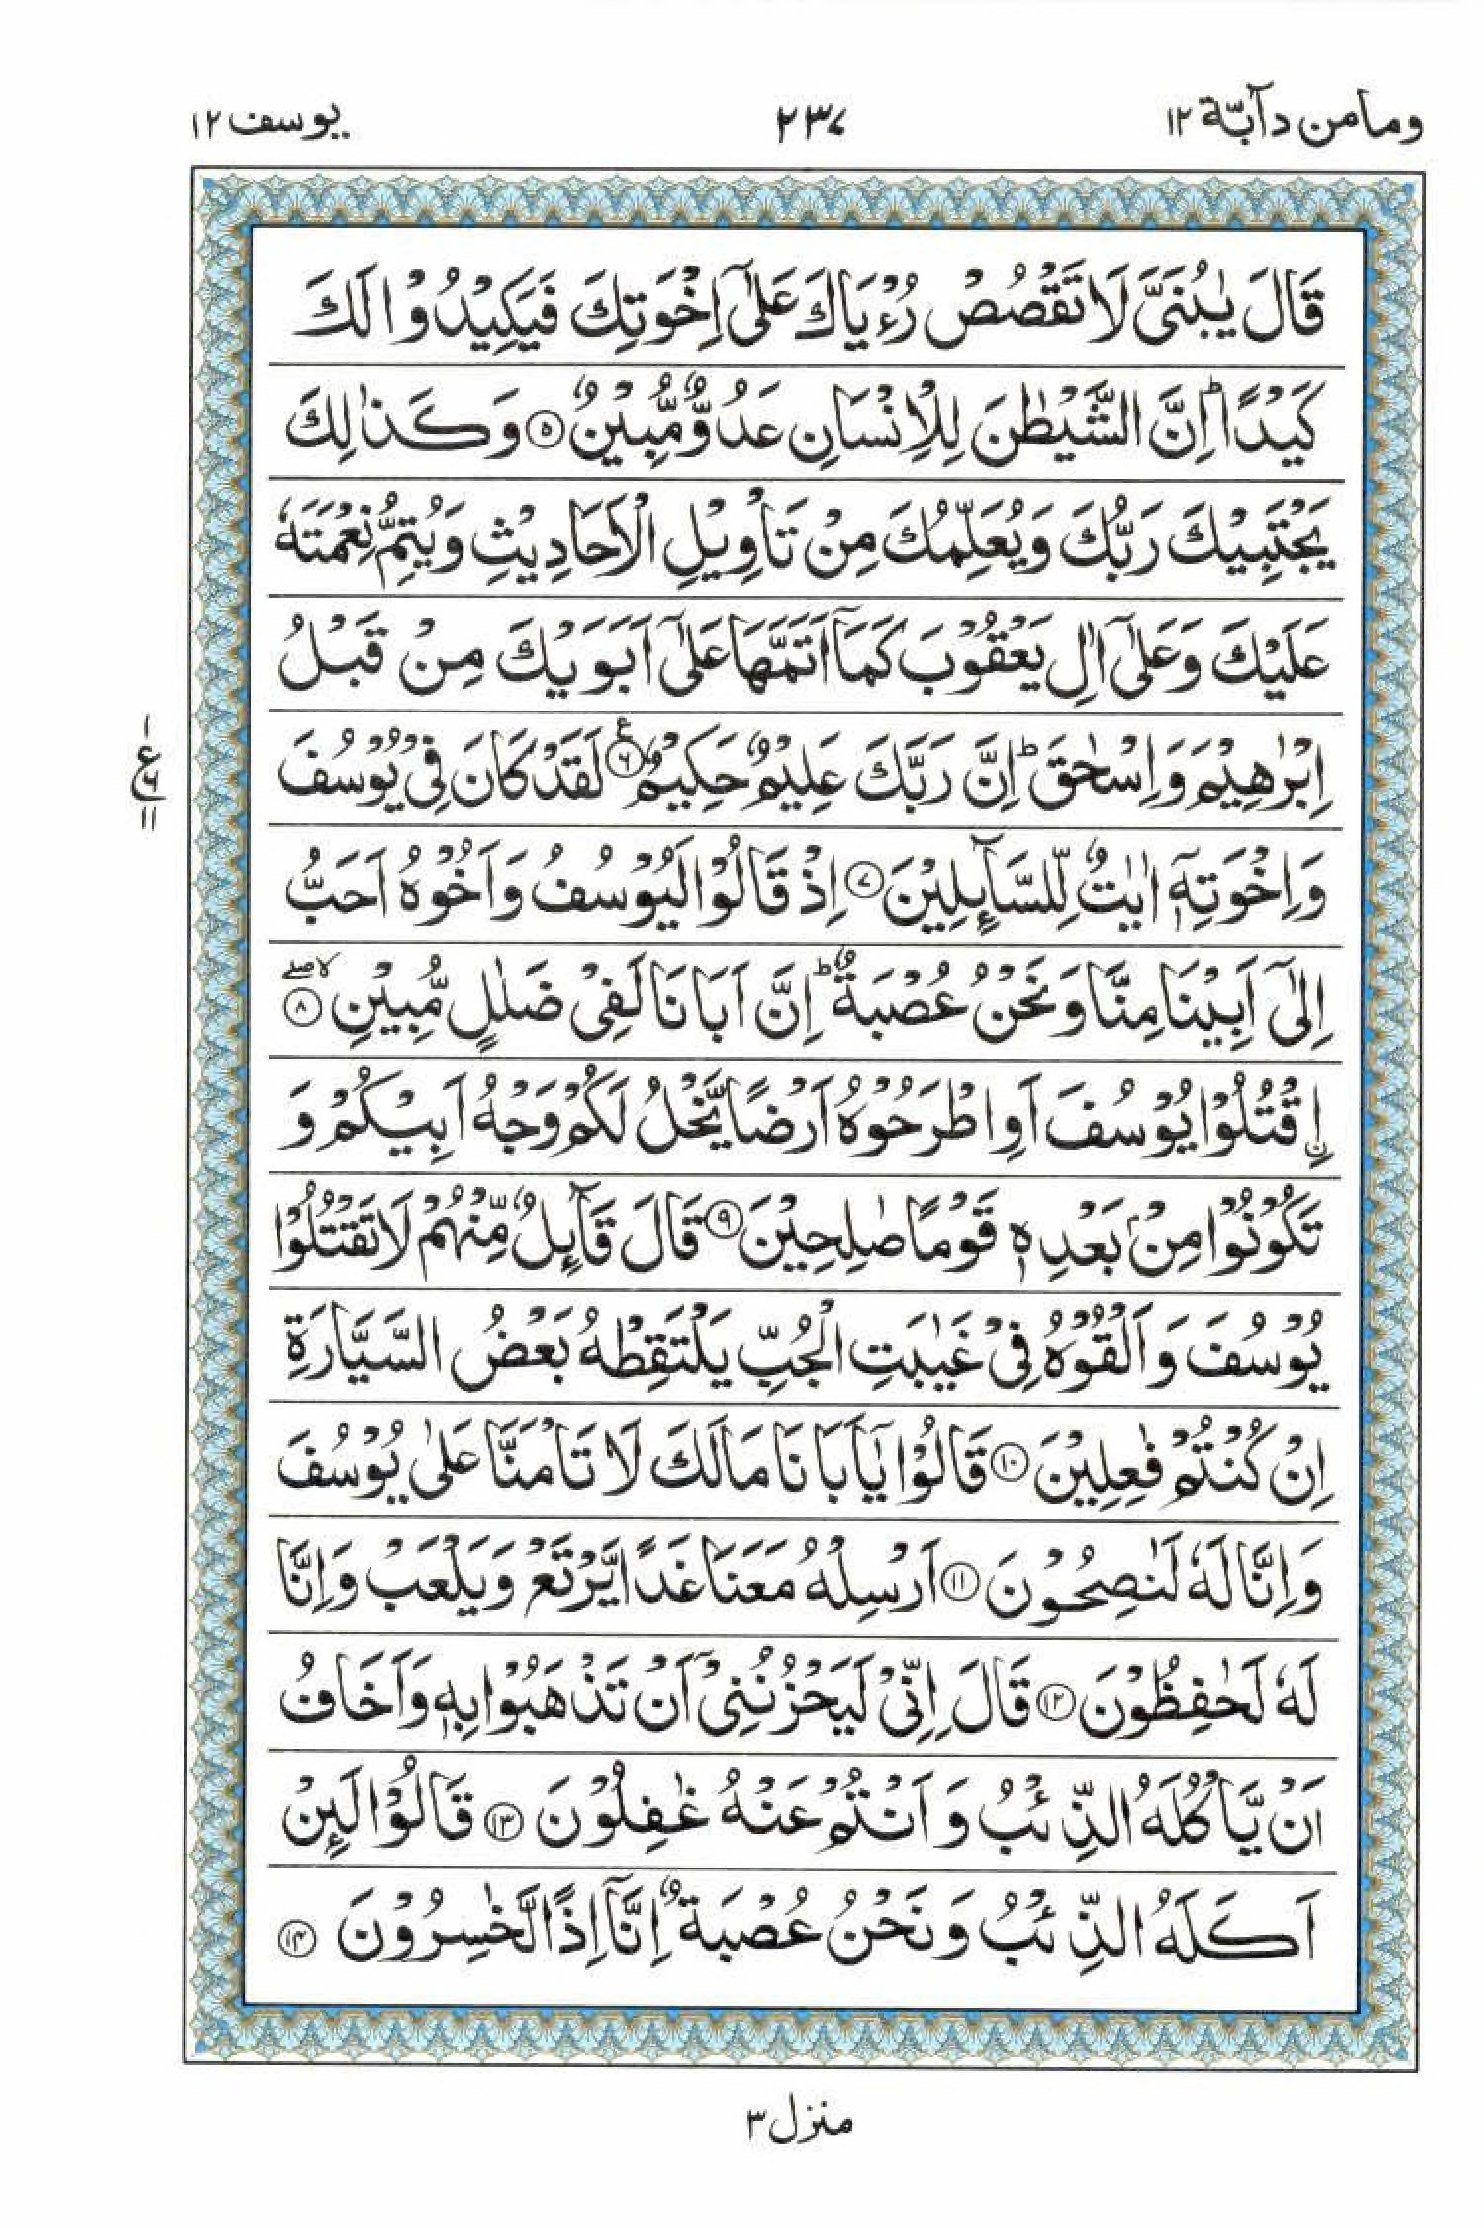 وما من دآبّة ١٢
٢٣٧
يوسف ١٢
قَالَ يٰبُنَيَّ لَا تَقْصُصْ رُءْيَاكَ عَلٰٓى اِخْوَتِكَ فَيَكِيْدُوْا لَكَ
كَيْدًا ؕ اِنَّ الشَّيْطٰنَ لِلْاِنْسَانِ عَدُوٌّ مُّبِيْنٌ ۝۵ وَكَذٰلِكَ
يَجْتَبِيْكَ رَبُّكَ وَيُعَلِّمُكَ مِنْ تَاْوِيْلِ الْاَحَادِيْثِ وَيُتِمُّ نِعْمَتَهٗ
عَلَيْكَ وَعَلٰٓى اٰلِ يَعْقُوْبَ كَمَاۤ اَتَمَّهَا عَلٰٓى اَبَوَيْكَ مِنْ قَبْلُ
اِبْرٰهِيْمَ وَاِسْحٰقَ ؕ اِنَّ رَبَّكَ عَلِيْمٌ حَكِيْمٌ ۝۶ ع لَقَدْ كَانَ فِيْ يُوْسُفَ
١ ع ۶ ١١
وَاِخْوَتِهٖۤ اٰيٰتٌ لِّلسَّآىِٕلِيْنَ ۝۷ اِذْ قَالُوْا لَيُوْسُفُ وَاَخُوْهُ اَحَبُّ
اِلٰٓى اَبِيْنَا مِنَّا وَنَحْنُ عُصْبَةٌ ؕ اِنَّ اَبَانَا لَفِيْ ضَلٰلٍ مُّبِيْنِ ۝۸ ۙۖ
اِ۟قْتُلُوْا يُوْسُفَ اَوِ اطْرَحُوْهُ اَرْضًا يَّخْلُ لَكُمْ وَجْهُ اَبِيْكُمْ وَ
تَكُوْنُوْا مِنْۢ بَعْدِهٖ قَوْمًا صٰلِحِيْنَ ۝۹ قَالَ قَآىِٕلٌ مِّنْهُمْ لَا تَقْتُلُوْا
يُوْسُفَ وَاَلْقُوْهُ فِيْ غَيٰبَتِ الْجُبِّ يَلْتَقِطْهُ بَعْضُ السَّيَّارَةِ
اِنْ كُنْتُمْ فٰعِلِيْنَ ۝۱۰ قَالُوْا يٰۤاَبَانَا مَا لَكَ لَا تَاْمَنَّا عَلٰى يُوْسُفَ
وَاِنَّا لَهٗ لَنٰصِحُوْنَ ۝۱۱ اَرْسِلْهُ مَعَنَا غَدًا يَّرْتَعْ وَيَلْعَبْ وَاِنَّا
لَهٗ لَحٰفِظُوْنَ ۝۱۲ قَالَ اِنِّيْ لَيَحْزُنُنِيْۤ اَنْ تَذْهَبُوْا بِهٖ وَاَخَافُ
اَنْ يَّاْكُلَهُ الذِّئْبُ وَاَنْتُمْ عَنْهُ غٰفِلُوْنَ ۝۱۳ قَالُوْا لَىِٕنْ
اَكَلَهُ الذِّئْبُ وَنَحْنُ عُصْبَةٌ اِنَّاۤ اِذًا لَّخٰسِرُوْنَ ۝۱۴
منزل ٣